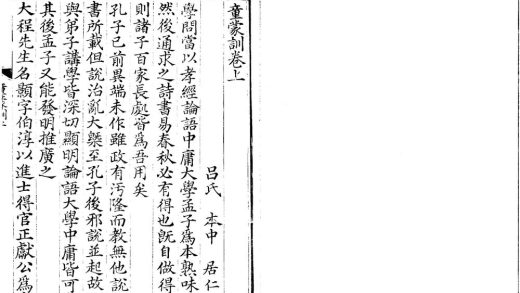 童蒙訓卷上
呂氏 本中 居仁
學問當以孝經論語中庸大學孟子為本熟味
然後通求之詩書易春秋必有得也既自做得
則諸子百家長處皆為吾用矣
孔子已前異端未作雖政有污隆而教無他說
書所載但說治亂大槩至孔子後邪說並起故
與弟子講學皆深切顯明論語大學中庸皆可
其後孟子又能發明推廣之
大程先生名顥字伯淳以進士得官正獻公為